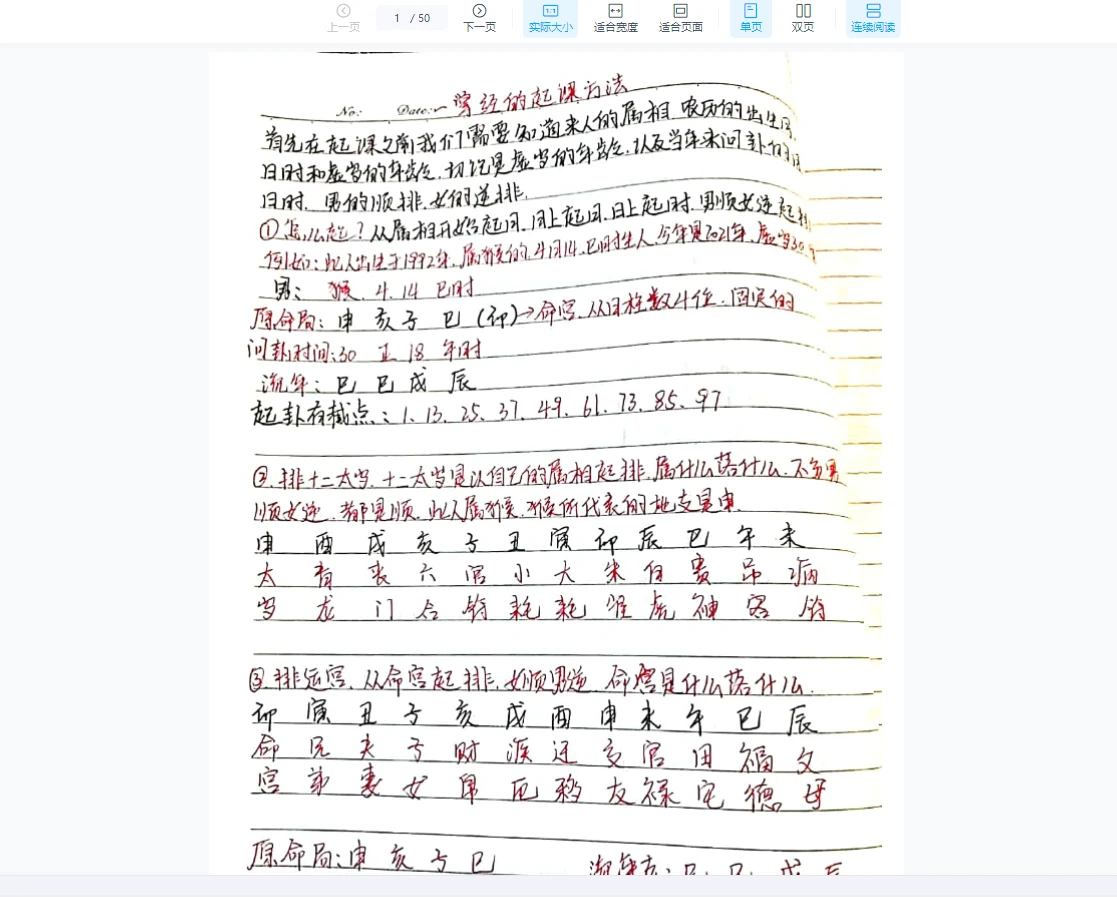 上一页
1 / 50
下一页
实际大小
适合宽度
适合页面
单页
双页
连续阅读
No: Date: 掌经的起课方法
首先在起课之前我们需要知道来人的属相 农历的出生月
日时和虚岁的年龄,切记是虚岁的年龄,以及当年来问卦的月
日时 男的顺排,女的逆排,
①怎么起?从属相开始起月,月上起日,日上起时,男顺女逆起排
例如:此人出生于1992年,属猴的,4月14,巳时生人,今年是2021年,虚岁30岁
男: 猴、4、14 巳时
原命局:申 亥 子 巳(卯)→命宫,从时柱数4位、固定的
问卦时间:30 正 18 午时
流年:巳 巳 戌 辰
起卦有截点:1、13、25、37、49、61、73、85、97
②、排十二太岁,十二太岁是以自己的属相起排,属什么落什么,不分男
顺女逆,都是顺,此人属猴,猴所代表的地支是申,
申 酉 戌 亥 子 丑 寅 卯 辰 巳 午 未
太 青 丧 六 官 小 大 朱 白 贵 吊 病
岁 龙 门 合 符 耗 耗 雀 虎 神 客 符
③、排运宫,从命宫起排,女顺男逆 命宫是什么落什么,
卯 寅 丑 子 亥 戌 酉 申 未 午 巳 辰
命 兄 夫 子 财 疾 迁 交 官 田 福 父
宫 弟 妻 女 帛 厄 移 友 禄 宅 德 母
原命局:申 亥 子 巳 流年 : 巳 巳 戌 辰